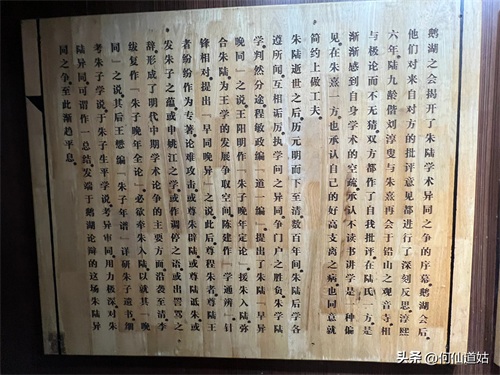 鹅湖之会揭开了朱陆学术异同之争的序幕。鹅湖会后。
他们对来自对方的批评意见都进行了深刻反思。淳熙
六年。陆九龄偕刘淳叟与朱熹再会于铅山之观音寺。相
与极论而不无猜。双方都作了自我批评。在陆氏一方。是
渐渐感到自身学术的空疏。承认不读书讲学是一种偏
见。在朱熹一方。也承认自己的好高支离之病。也同意就
简约上做工夫。
朱陆逝世之后。历元明而下至清数百年间。朱陆后学各
遵所闻。互相诟厉。执学问之异同。争门户之胜负。朱学陆
学。判然分途。程敏政编《道一编》。提出了朱陆「早异
晚同」之说。王阳明作《朱子晚年定论》。援朱入陆。弥
合朱陆。为王学的发展争取空间。陈建作《学通辨》。针
锋相对。提出「早同晚异」之说。此后。尊程朱者。尊陆王
者。纷纷作为专著。论难攻击。或尊朱辟陆。或尊陆诋朱。或
发朱子之蕴。或申姚江之学。或作调停之语。或出詈骂之
辞。形成了明代中期学术论争的主要方面。沿袭至清。李
绂复作《朱子晚年全论》。必欲牵朱入陆。以就其「晚
同」之说。其后王懋编《朱子年谱》。详研朱子遗书。细
考朱子学说。于朱子生平学说。考异审同。用力极深。对朱
陆异同。可谓作一总结。发端于鹅湖论辩的这场朱陆异
同之争。至此渐趋平息。
头条 @何仙道姑